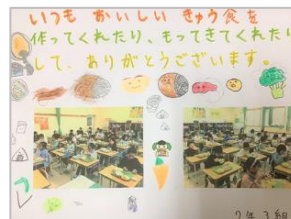 いつも おいしい きゅう食を
作ってくれたり、もってきてくれたり
して、ありがとうございます。
2年3組